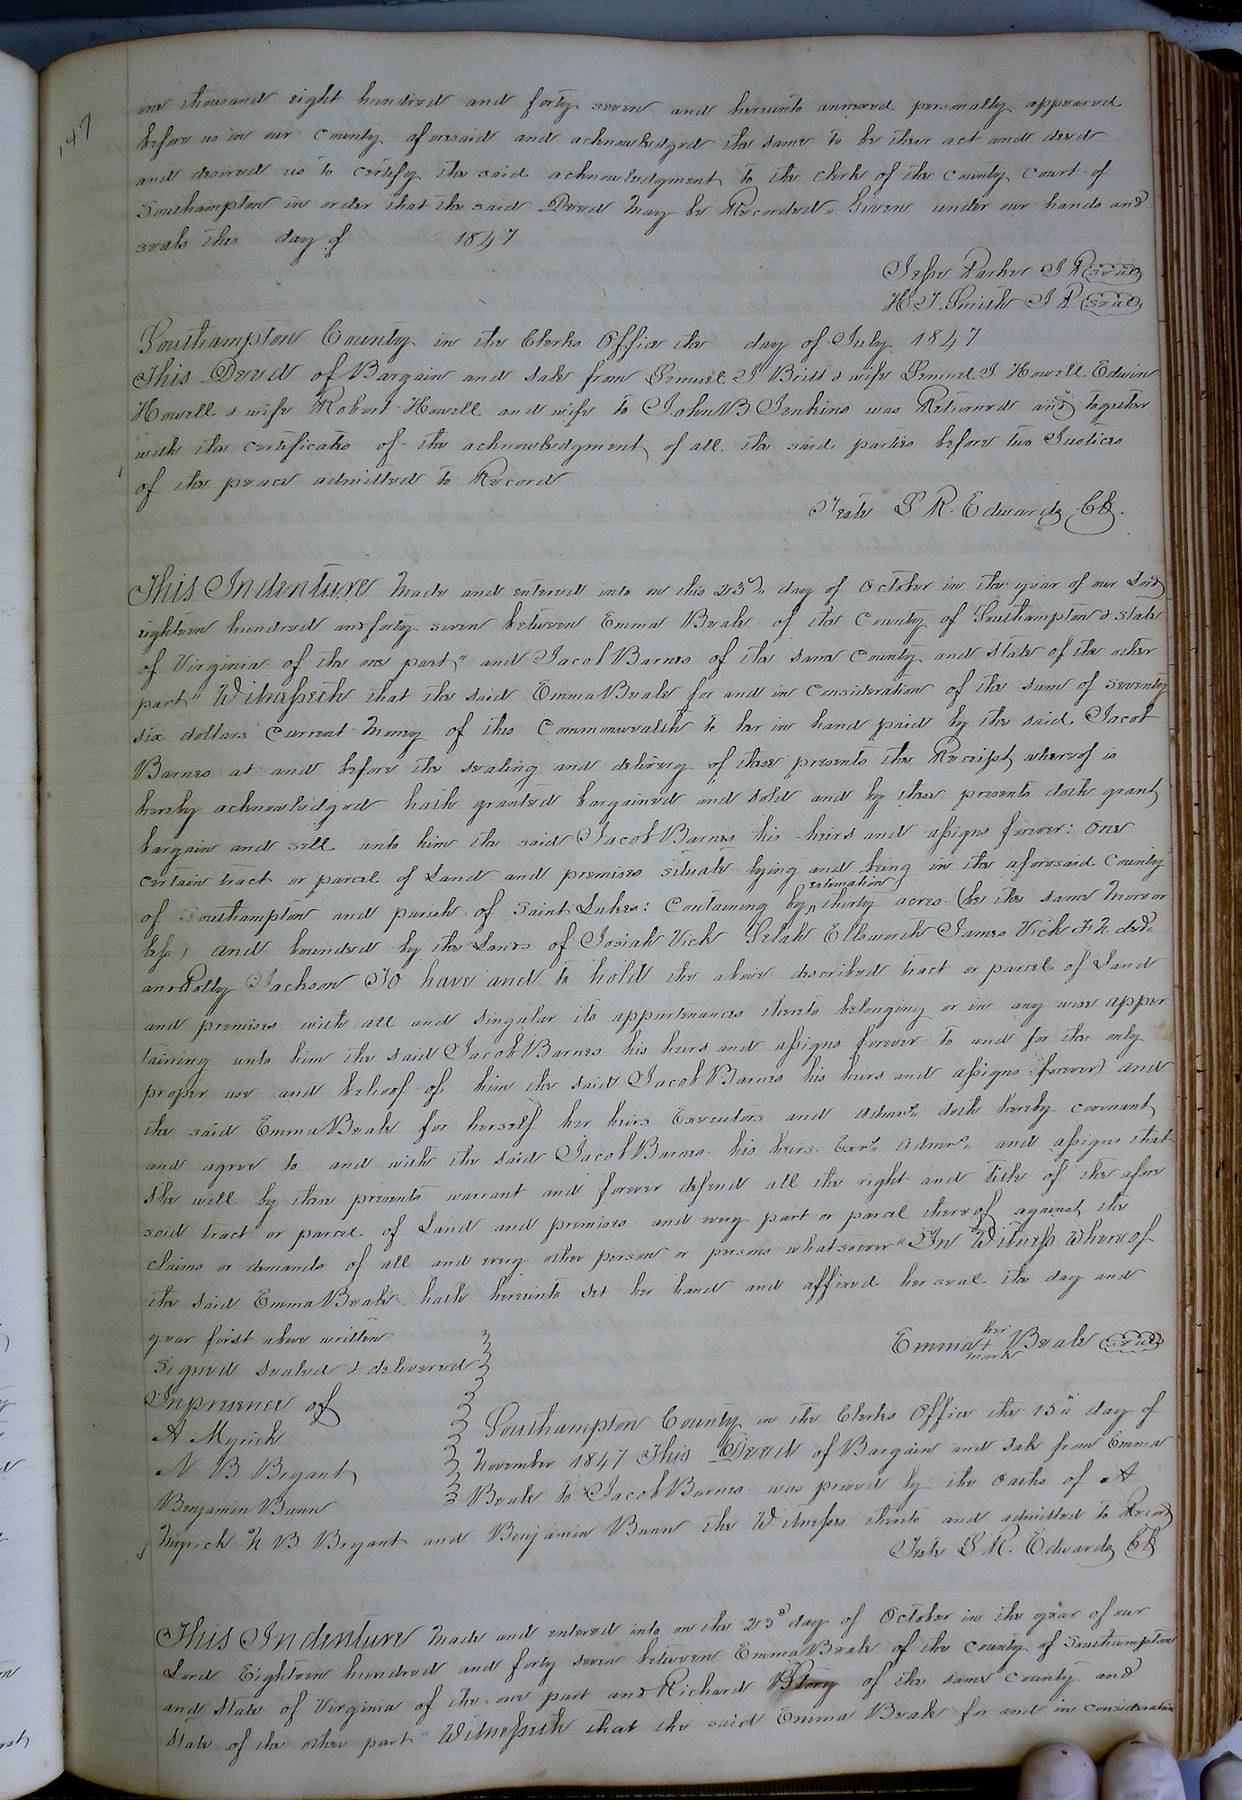 147
one thousand eight hundred and forty seven and hereunto annexed personally appeared
before us in our County aforesaid and acknowledged the same to be their act and deed
and desired us to certify the said acknowledgment to the clerk of the County Court of
Southampton in order that the said Deed may be Recorded. Given under our hands and
seals this day of 1847
Jesse Parker J P Seal
H. J. Smith J P Seal
Southampton County in the Clerks Office the day of July 1847
This Deed of Bargain and Sale from Lemuel J Britt & wife Lemuel J Howell Edwin
Howell & wife Robert Howell and wife to John B Jenkins was Returned and together
with the certificates of the acknowledgment of all the said parties before two Justices
of the peace admitted to Record
Teste L R. Edwards Clk.
This Indenture Made and entered into on this 23d day of October in the year of our Lord
eighteen hundred and forty seven between Emma Beale of the County of Southampton & State
of Virginia of the one part" and Jacob Barnes of the same County and State of the other
part" Witnesseth that the said Emma Beale for and in Consideration of the sum of Seventy
six dollars Current Money of this Commonwealth to her in hand paid by the said Jacob
Barnes at and before the sealing and delivery of these presents the Receipt whereof is
hereby acknowledged hath granted bargained and sold and by these presents doth grant
bargain and sell unto him the said Jacob Barnes his heirs and assigns forever: One
certain tract or parcel of Land and premises situate lying and being in the aforesaid County
of Southampton and parish of Saint Lukes: Containing by estimation thirty acres (be the same More or
less) and bounded by the Lands of Josiah Vick Selah Ellsworth James Vick decd.
and Polly Jackson To have and to hold the above described tract or parcel of Land
and premises with all and singular its appurtenances thereto belonging or in any wise apper
taining unto him the said Jacob Barnes his heirs and assigns forever to and for the only
proper use and behoof of him the said Jacob Barnes his heirs and assigns forever) and
the said Emma Beale for herself her heirs Executors and Admrs. doth hereby covenant
and agree to and with the said Jacob Barnes his heirs Exrs. Admrs. and assigns that
She will by these presents warrant and forever defend all the right and title of the afore
said tract or parcel of Land and premises and every part or parcel thereof against the
claims or demands of all and every other person or persons whatsoever" In Witness whereof
the said Emma Beale hath hereunto set her hand and affixed her seal the day and
year first above written
Emma her + mark Beale Seal
Signed sealed & delivered
In presence of
A Myrick
N B Bryant
Benjamin Bunn
Southampton County in the Clerks Office the 15th day of
November 1847 This Deed of Bargain and Sale from Emma
Beale to Jacob Barnes was proved by the oaths of A
Myrick N B Bryant and Benjamin Bunn the Witnesses thereto and admitted to Record
Teste L R. Edwards Clk
This Indenture Made and entered into on the 23d day of October in the year of our
Lord Eighteen hundred and forty seven between Emma Beale of the County of Southampton
and State of Virginia of the one part and Richard of the same County and
State of the other part" Witnesseth that the said Emma Beale for and in consideration